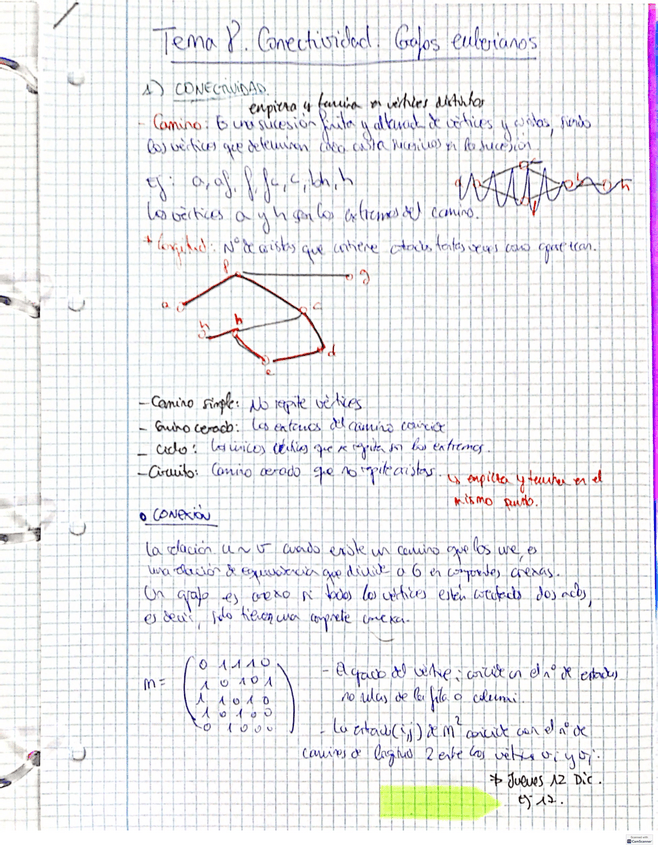 Tema 8. Conectividad. Grafos eulerianos
1) CONECTIVIDAD
empieza y termina en vértices distintos
- Camino: Es una sucesión finita y alternada de vértices y aristas, siendo
los vértices que determinan cada arista en la sucesión
ej: a, af, f, fc, c, h
Los vértices a y h son los extremos del camino.
* Longitud: Nº de aristas que contiene tantas veces como aparezcan.
f
g
a
c
h
d
e
- Camino simple: No repite vértices
- Camino cerado: Los extremos del camino coincide
- Ciclo: Los únicos que se repite son los extremos.
- Circuito: Camino cerado que no repite aristas. ↳ empieza y termina en el
mismo punto.
• CONEXIÓN
La relación u ~ v cuando existe un camino que los une, es
una relación de equivalencia que divide a G en conexas.
Un grafo es conexo si todos los vértices están conectados dos a dos,
es decir, solo tiene una conexa.
M = ( 0 1 1 1 0
1 0 1 0 1
1 1 0 1 0
1 0 1 0 0
0 1 0 0 0 )
- El grado del vértice i coincide con el nº de entradas
no nulas de la fila o columna i.
- La entrada (i,j) de M² coincide con el nº de
caminos de longitud 2 entre los vértices vi y vj.
* Jueves 12 Dic.
ej 12.
CamScanner